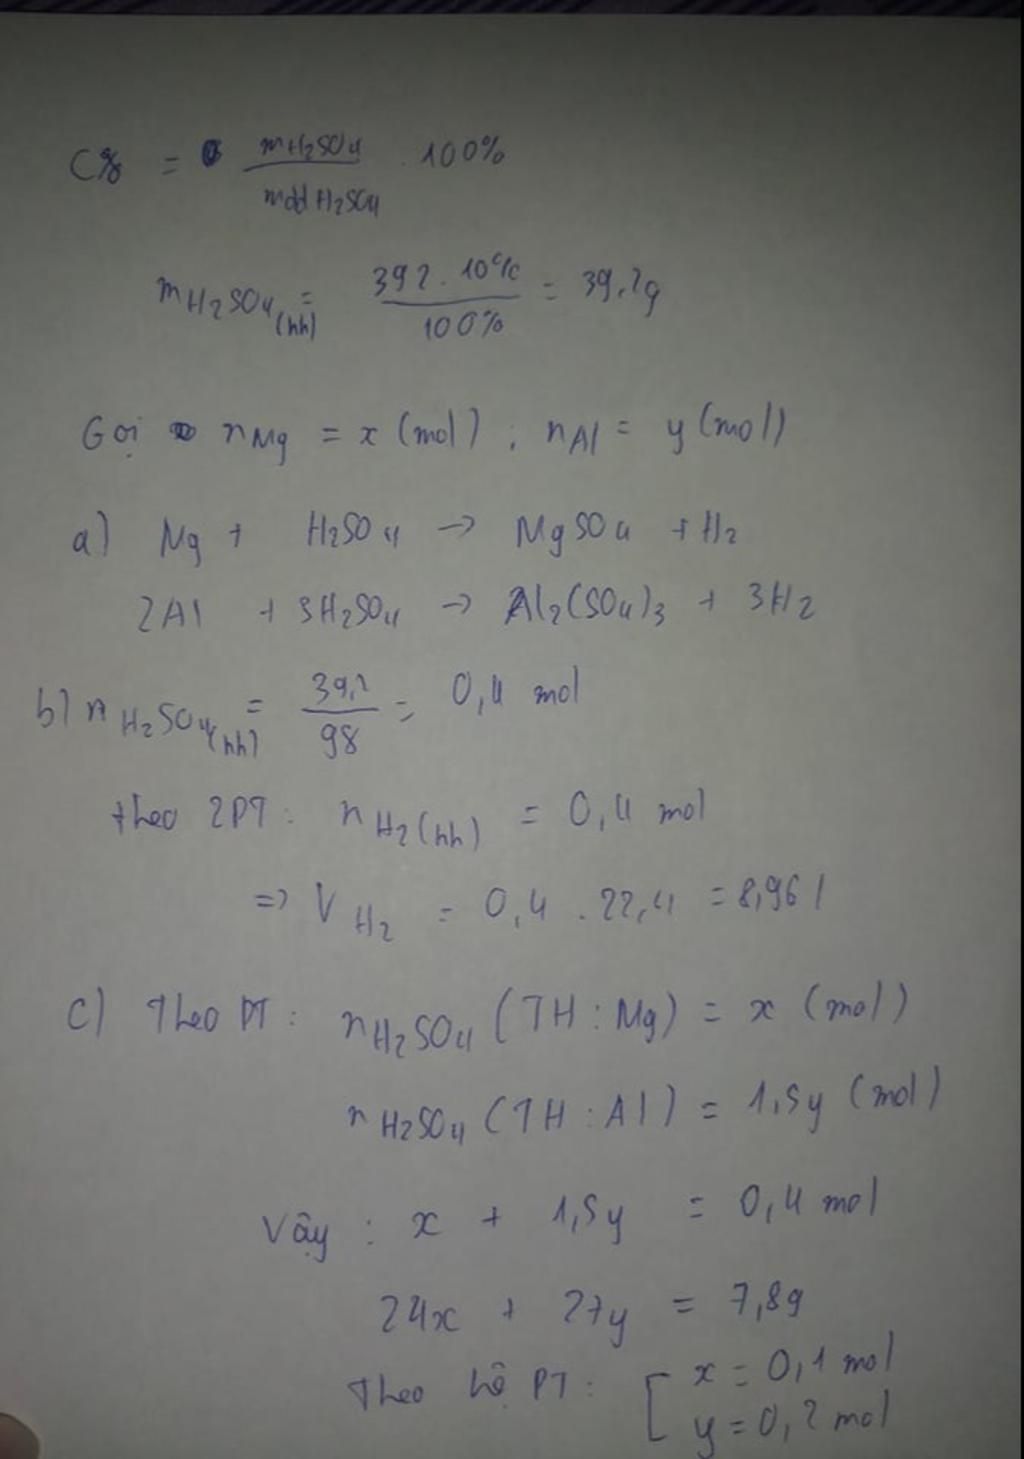 C% = mH₂SO₄ / mdd H₂SO₄ . 100%
mH₂SO₄(hh) = 392 . 10% / 100% = 39,2g
Gọi nMg = x (mol) ; nAl = y (mol)
a) Mg + H₂SO₄ → MgSO₄ + H₂
2Al + 3H₂SO₄ → Al₂(SO₄)₃ + 3H₂
b) nH₂SO₄(hh) = 39,2 / 98 = 0,4 mol
theo 2PT : nH₂(hh) = 0,4 mol
=> VH₂ = 0,4 . 22,4 = 8,96 l
c) Theo PT : nH₂SO₄ (TH : Mg) = x (mol)
nH₂SO₄ (TH : Al) = 1,5y (mol)
Vậy : x + 1,5y = 0,4 mol
24x + 27y = 7,8g
Theo hệ PT : [ x = 0,1 mol
y = 0,2 mol